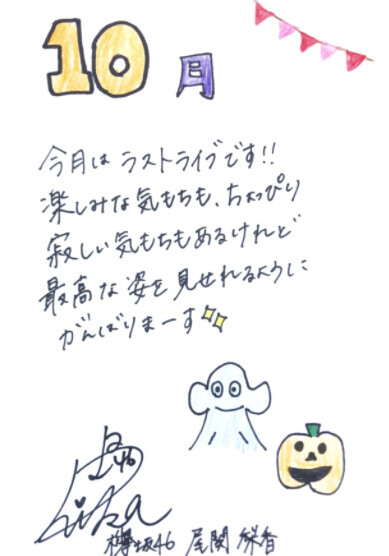 10月
今月は ラストライブです!!
楽しみな気もちも、ちょっぴり
寂しい気もちもあるけれど
最高な姿を見せれるように
がんばりまーす
欅坂46 尾関 梨香